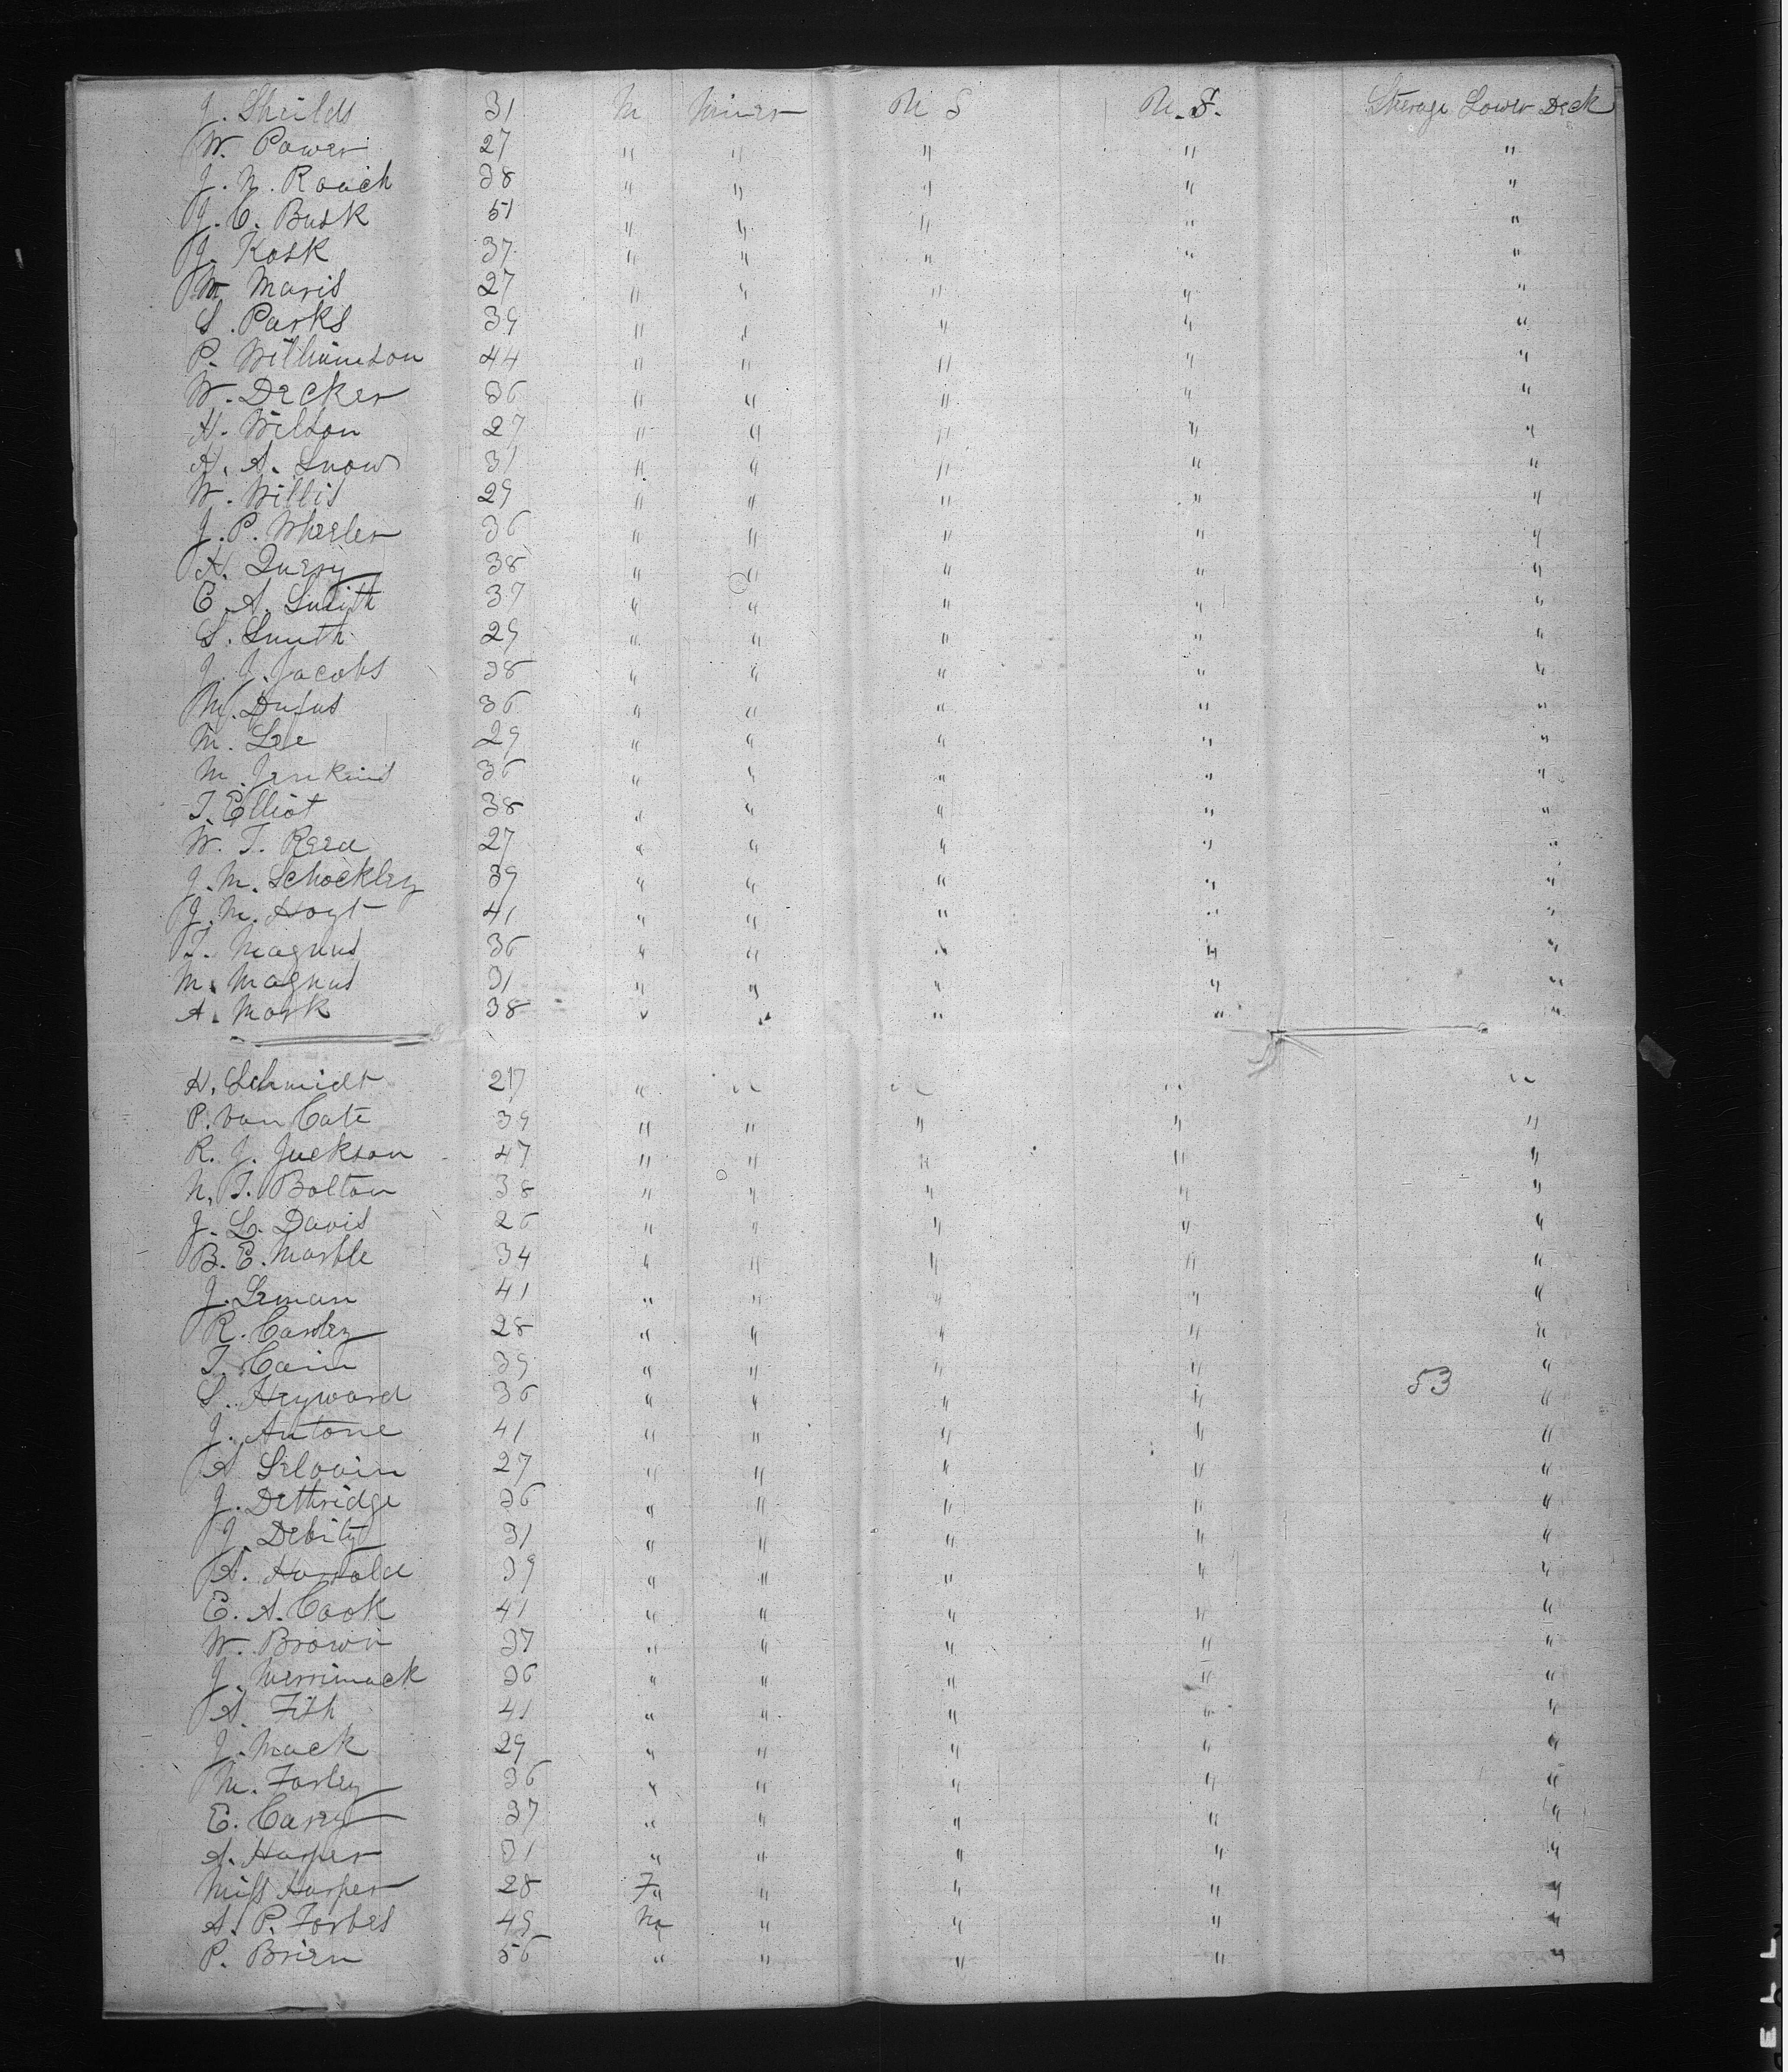 J. Sheilds 31 M Miner U S U.S. Steerage Lower Deck
W. Power 27 " " " " "
J. N. Roach 38 " " " " "
J. C. Busk 51 " " " " "
J. Kosk 37 " " " " "
M Maris 27 " " " " "
S. Parks 39 " " " " "
P. Williamson 44 " " " " "
W. Decker 36 " " " " "
H. Wilson 27 " " " " "
H. A. Snow 31 " " " " "
W. Willis 29 " " " " "
J. P. Wheeler 36 " " " " "
H. Query 38 " " " " "
C. A. Smith 37 " " " " "
S. Smith 29 " " " " "
J. J. Jacobs 38 " " " " "
M. Dufus 36 " " " " "
M. Lee 29 " " " " "
M. Jenkins 36 " " " " "
T. Elliot 38 " " " " "
W. T. Reed 27 " " " " "
J. M. Schockley 39 " " " " "
J. M. Hoyt 41 " " " " "
T. Magnus 36 " " " " "
M. Magnus 31 " " " " "
A. Mork 38 " " " " "
H. Schmidt 27 " " " " "
P. Van Cate 39 " " " " "
R. J. Jackson 47 " " " " "
N. T. Bolton 38 " " " " "
J. L. Davis 26 " " " " "
B. E. Marble 34 " " " " "
J. Leman 41 " " " " "
R. Carley 28 " " " " "
T. Cain 39 " " " " "
S. Heyward 36 " " " 53 "
J. Antone 41 " " " " "
A Selovin 27 " " " " "
J. Dethridge 36 " " " " "
J. Debity 31 " " " " "
A. Harrold 39 " " " " "
E. A. Cook 41 " " " " "
W. Brown 37 " " " " "
J. Merrimack 36 " " " " "
A. Fish 41 " " " " "
J. Mack 29 " " " " "
M. Farley 36 " " " " "
E. Carey 37 " " " " "
A. Harper 31 " " " " "
Miss Harper 28 F " " " "
A. P. Forbes 49 M " " " "
P. Brien 56 " " " " "